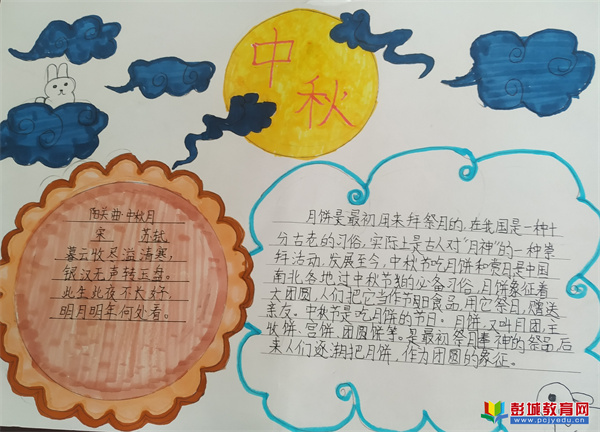 中秋
阳关曲·中秋月
宋 苏轼
暮云收尽溢清寒,
银汉无声转玉盘。
此生此夜不长好,
明月明年何处看。
月饼是最初用来拜祭月的,在我国是一种十
分古老的习俗,实际上是古人对“月神”的一种崇
拜活动,发展至今,中秋节吃月饼和赏月是中国
南北各地过中秋节的必备习俗,月饼象征着
大团圆,人们把它当作节日食品,用它祭月,赠送
亲友。中秋节是吃月饼的节日。月饼,又叫月团,
收饼、宫饼、团圆饼等。是最初祭月神的祭品,后
来人们逐渐把月饼,作为团圆的象征。
彭城教育网
www.pcjyedu.cn